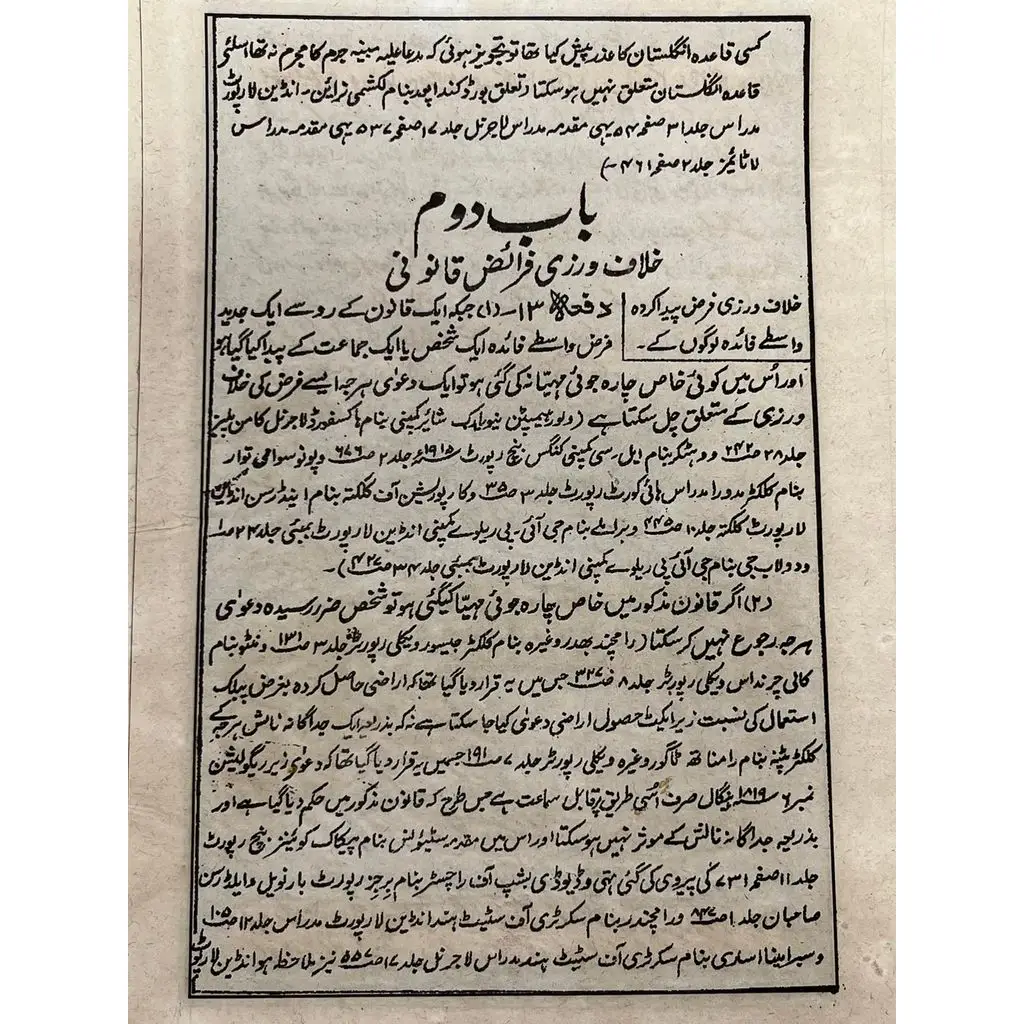 کسی قاعدہ انگلستان کا عذر پیش کیا تھا تو تجویز ہوئی کہ مدعا علیہ مبینہ جرم کا مجرم نہ تھا اسلئے
قاعدہ انگلستان متعلق نہیں ہو سکتا (تعلق بورڈ کنداپور بنام لکشمی نراین۔ انڈین لا رپورٹ
مدراس جلد ۳۱ صفحہ ۵۴ یہی مقدمہ مدراس لا جرنل جلد ۱۷ صفحہ ۵۳۷ یہی مقدمہ مدراس
لا ٹائمز جلد ۲ صفحہ ۴۶۱۔)
باب دوم
خلاف ورزی فرائض قانونی
خلاف ورزی فرض پیدا کردہ
واسطے فائدہ لوگوں کے۔
دفعہ ۱۳۔ (۱) جبکہ ایک قانون کے رو سے ایک جدید
فرض واسطے فائدہ ایک شخص یا ایک جماعت کے پیدا کیا گیا ہو
اور اُس میں کوئی خاص چارہ جوئی مہیّا نہ کی گئی ہو تو ایک دعویٰ ہرجہ ایسے فرض کی خلاف
ورزی کے متعلق چل سکتا ہے (وولورہیمپٹن نیو واٹر کمپنی بنام ہاکسفورڈ لا جرنل کامن پلیز
جلد ۲۸ صـ۲۴۲ و وہٹکر بنام ایل سی کمپنی کنگس بنچ رپورٹ ۱۹۱۵ء جلد ۲ صـ۶۷۶ و پونوسوامی توار
بنام کلکٹر مدورا مدراس ہائی کورٹ رپورٹ جلد ۳ صـ۳۵ و کارپوریشن آف کلکتہ بنام اینڈرسن انڈین
لا رپورٹ کلکتہ جلد ۱۰ صـ۴۴۵ و بنام جی آئی۔ پی ریلوے کمپنی انڈین لا رپورٹ بمبئی جلد ۲۴ صـ۱
و دولاب جی بنام جی آئی پی ریلوے کمپنی انڈین لا رپورٹ بمبئی جلد ۳۴ صـ۴۲۷)۔
(۲) اگر قانون مذکور میں خاص چارہ جوئی مہیّا کیگئی ہو تو شخص ضرر رسیدہ دعویٰ
ہرجہ رجوع نہیں کر سکتا (رامچندر بھدر وغیرہ بنام کلکٹر جیسور ویکلی رپورٹر جلد ۳ صـ۱۳۱ ونٹو بنام
کالی چرنداس ویکلی رپورٹر جلد ۸ صـ۳۲۷ جس میں یہ قرار دیا گیا تھا کہ اراضی حاصل کردہ بغرض پبلک
استعمال کی نسبت زیر ایکٹ حصول اراضی دعویٰ کیا جا سکتا ہے نہ کہ بذریعہ ایک جداگانہ نالش ہرجہ کے
کلکٹر پٹنہ بنام رامناتھ ٹاگور وغیرہ ویکلی رپورٹر جلد ۷ صـ۱۹۱ جسمیں یہ قرار دیا گیا تھا کہ دعویٰ زیر ریگولیشن
نمبر ۶ ۱۸۱۹ء بنگال صرف اُسی طریق پر قابل سماعت ہے جس طرح کہ قانون مذکور میں حکم دیا گیا ہے اور
بذریعہ جداگانہ نالش کے موثر نہیں ہو سکتا اور اس میں مقدمہ سٹیونس بنام پیکاک کوئینز بنچ رپورٹ
جلد ۱۱ صفحہ ۷۳۱ کی پیروی کی گئی تھی و ڈیوڈی بشپ آف راچسٹر بنام برجز رپورٹ بارنویل و ایلڈرسن
صاحبان جلد ۱ صـ۸۴۷ و رامچندر بنام سکرٹری آف سٹیٹ ہند انڈین لا رپورٹ مدراس جلد ۱۲ صـ۱۰۵
و بنام سکرٹری آف سٹیٹ ہند مدراس لا جرنل جلد ۱۷ صـ۵۵۷ نیز ملاحظہ ہو انڈین لا رپورٹ